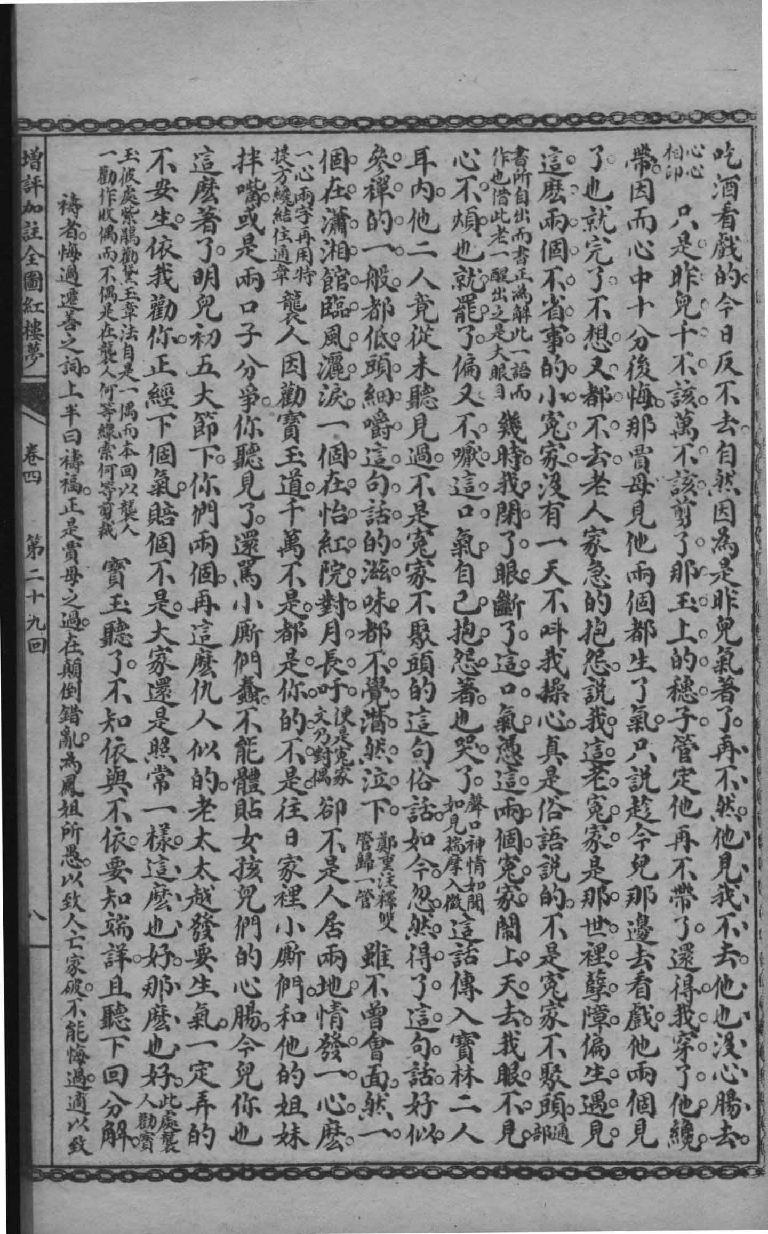 吃酒看戲的今日反不去自然因爲是昨兒氣著了再不然他見我不去他也沒心腸去
心心相印只是昨兒千不該萬不該剪了那玉上的穗子管定他再不帶了還得我穿了他纔
帶因而心中十分後悔那賈母見他兩個都生了氣只說趁今兒那邊去看戲他兩個見
了也就完了不想又都不去老人家急的抱怨說我這老冤家是那世裡孽障偏生遇見
這麽兩個不省事的小冤家沒有一天不叫我操心真是俗語說的不是冤家不聚頭通部
書所自出而書正爲解此一語而作也借此老一醒出之是大眼目幾時我閉了眼斷了這口氣憑這兩個冤家鬧上天去我眼不見
心不煩也就罷了偏又不嚥這口氣自己抱怨著也哭了聲口神情如聞如見揣摩入微這話傳入寶林二人
耳內他二人竟從未聽見過不是冤家不聚頭的這句俗話如今忽然得了這句話好似
參禪的一般都低頭細嚼這句話的滋味都不覺潸然泣下鄭重注釋雙管歸一管雖不曾會面然一
個在瀟湘館臨風灑淚一個在怡紅院對月長吁便是冤家文乃對偶卻不是人居兩地情發一心麽
一心兩字再用特提方纔結住通章襲人因勸寶玉道千萬不是都是你的不是往日家裡小厮們和他的姐妹
拌嘴或是兩口子分爭你聽見了還罵小厮們蠢不能體貼女孩兒們的心腸今兒你也
這麽著了明兒初五大節下你們兩個再這麽仇人似的老太太越發要生氣一定弄的
不安生依我勸你正經下個氣賠個不是大家還是照常一樣這麽也好那麽也好此處襲人勸寶
玉彼處紫鵑勸黛玉章法自是一偶而本回以襲人一勸作收偶而不偶是在襲人何等線索何等剪裁寶玉聽了不知依與不依要知端詳且聽下回分解
禱者悔過遷善之詞上半曰禱福正是賈母之過在顛倒錯亂爲鳳姐所愚以致人亡家破不能悔過適以致
增評加註全圖紅樓夢 卷四 第二十九回 八